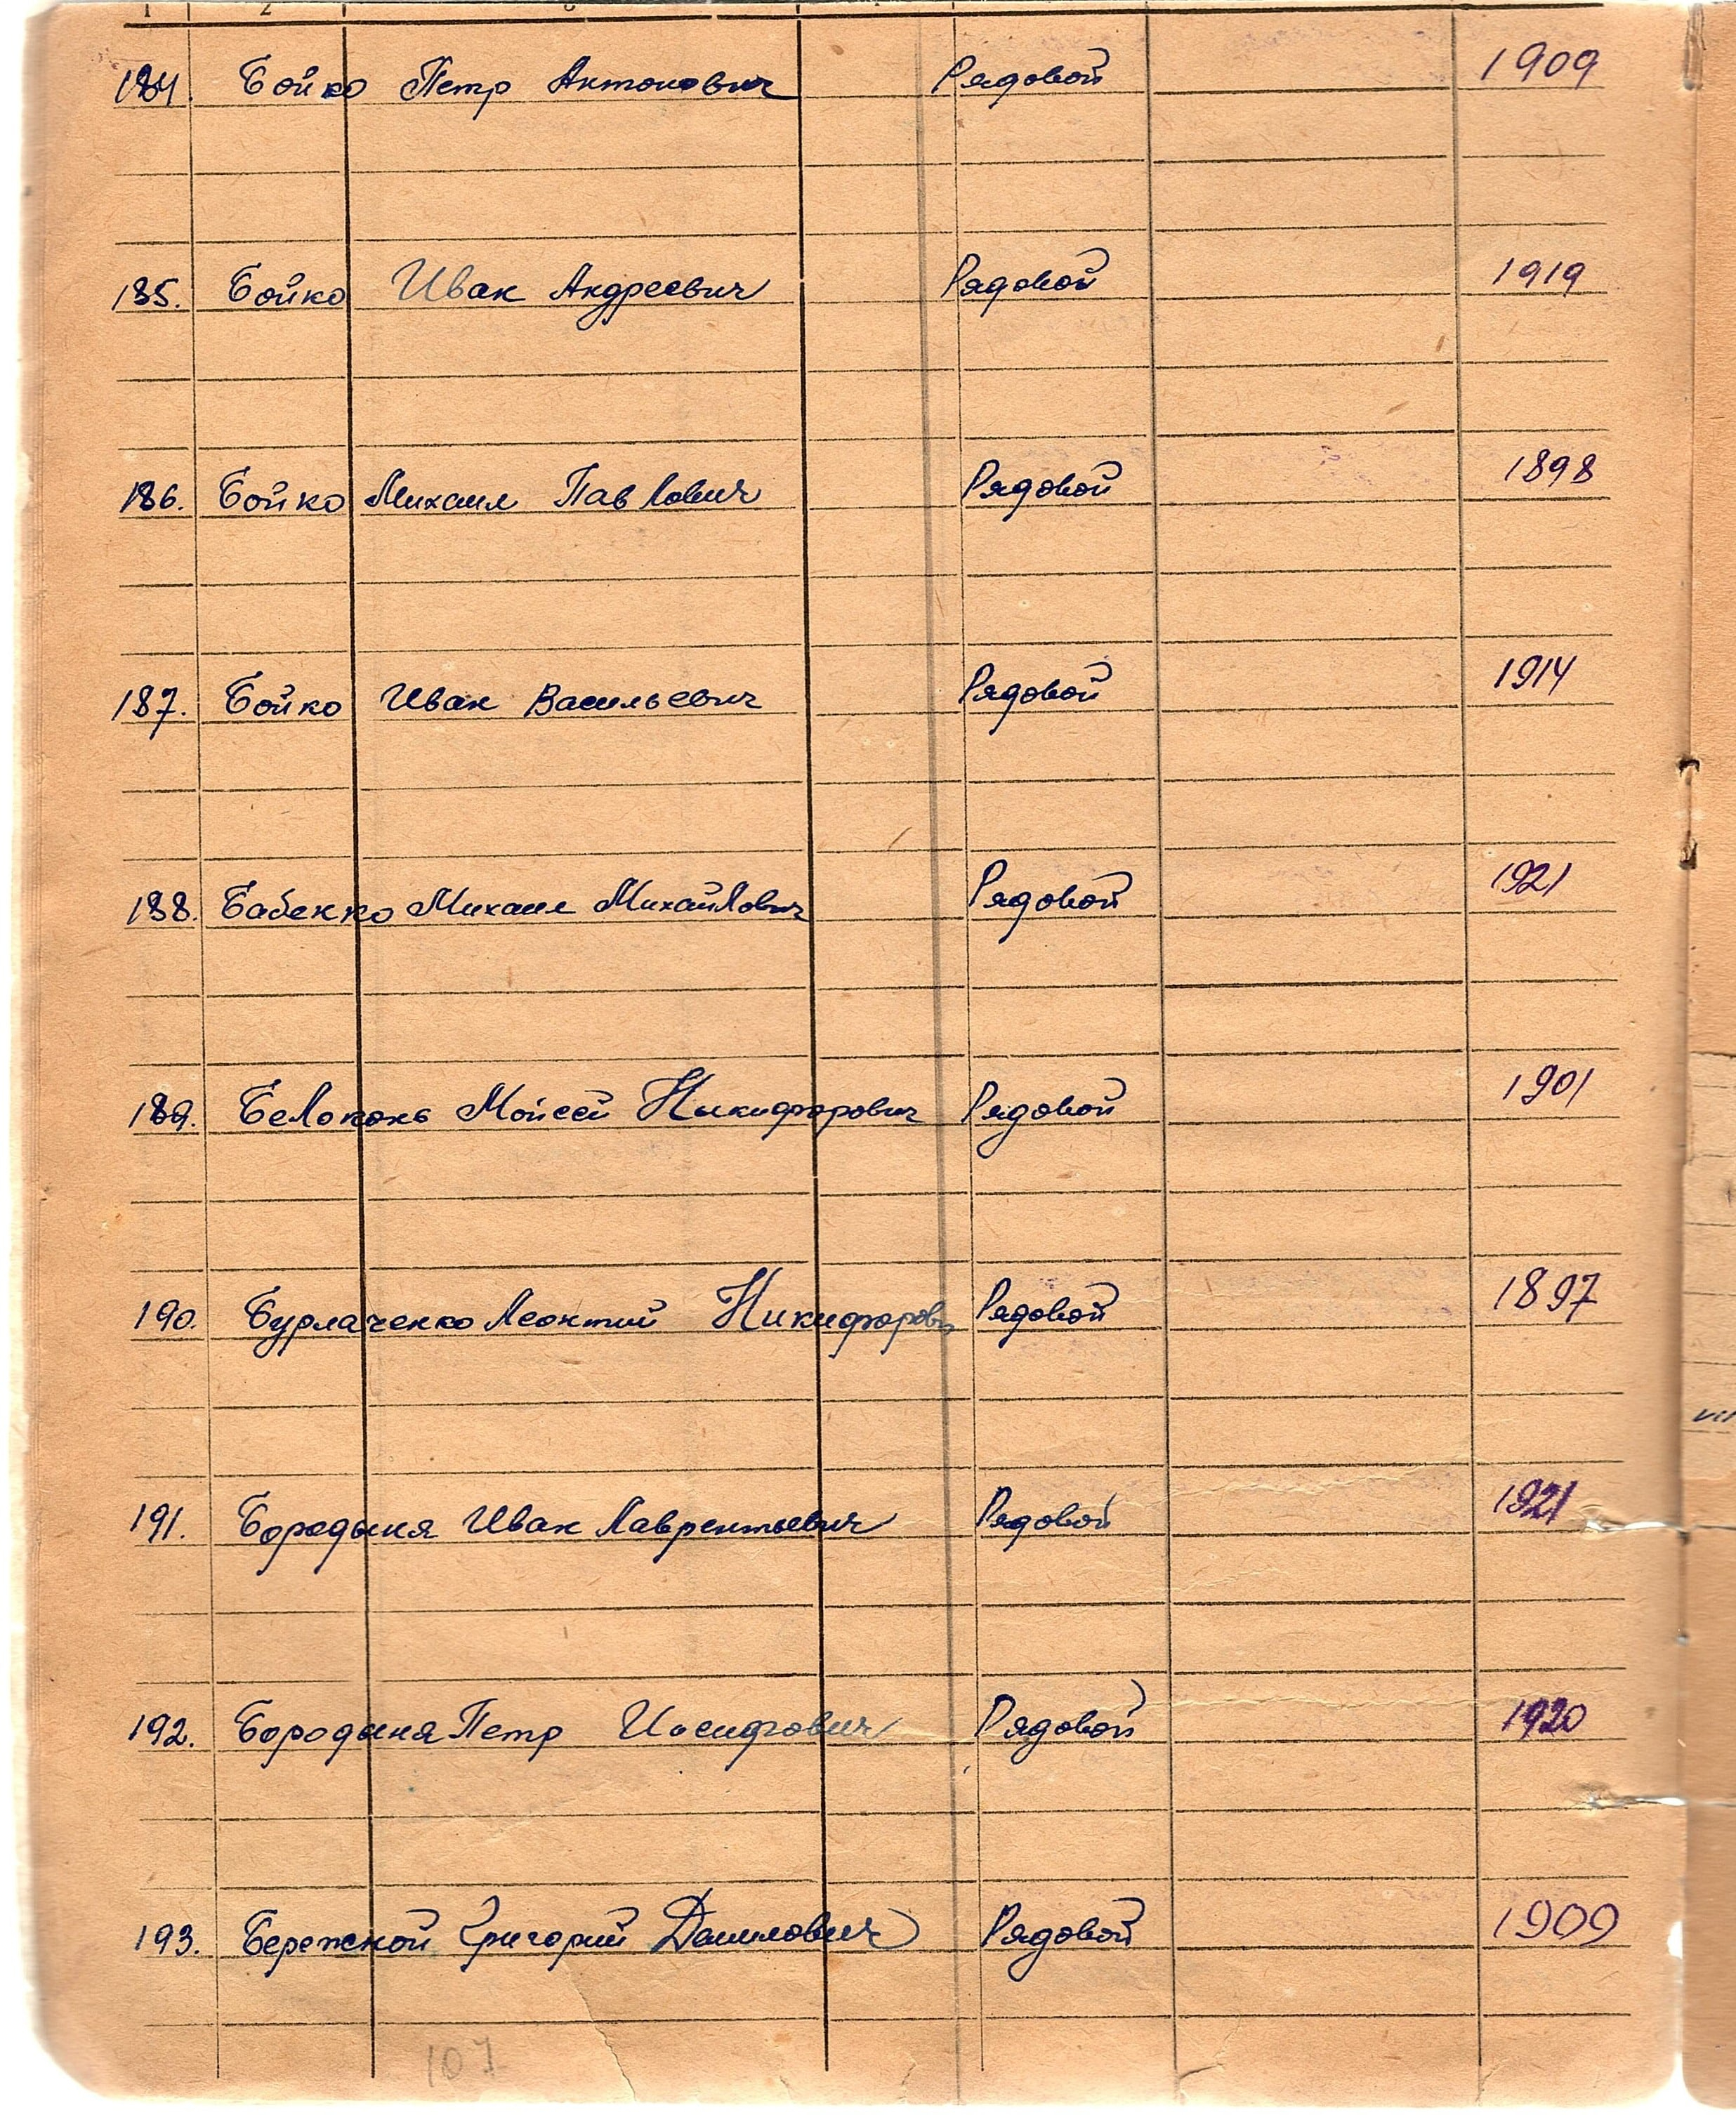 1 2 3 4
184. Бойко Петр Антонович Рядовой 1909
185. Бойко Иван Андреевич Рядовой 1919
186. Бойко Михаил Павлович Рядовой 1898
187. Бойко Иван Васильевич Рядовой 1914
188. Бабенко Михаил Михайлович Рядовой 1921
189. Белоконь Мойсей Никифорович Рядовой 1901
190. Бурлаченко Леонтий Никифорович Рядовой 1897
191. Бородыня Иван Лаврентьевич Рядовой 1921
192. Бородыня Петр Иосифович Рядовой 1920
193. Бережной Григорий Данилович Рядовой 1909
107